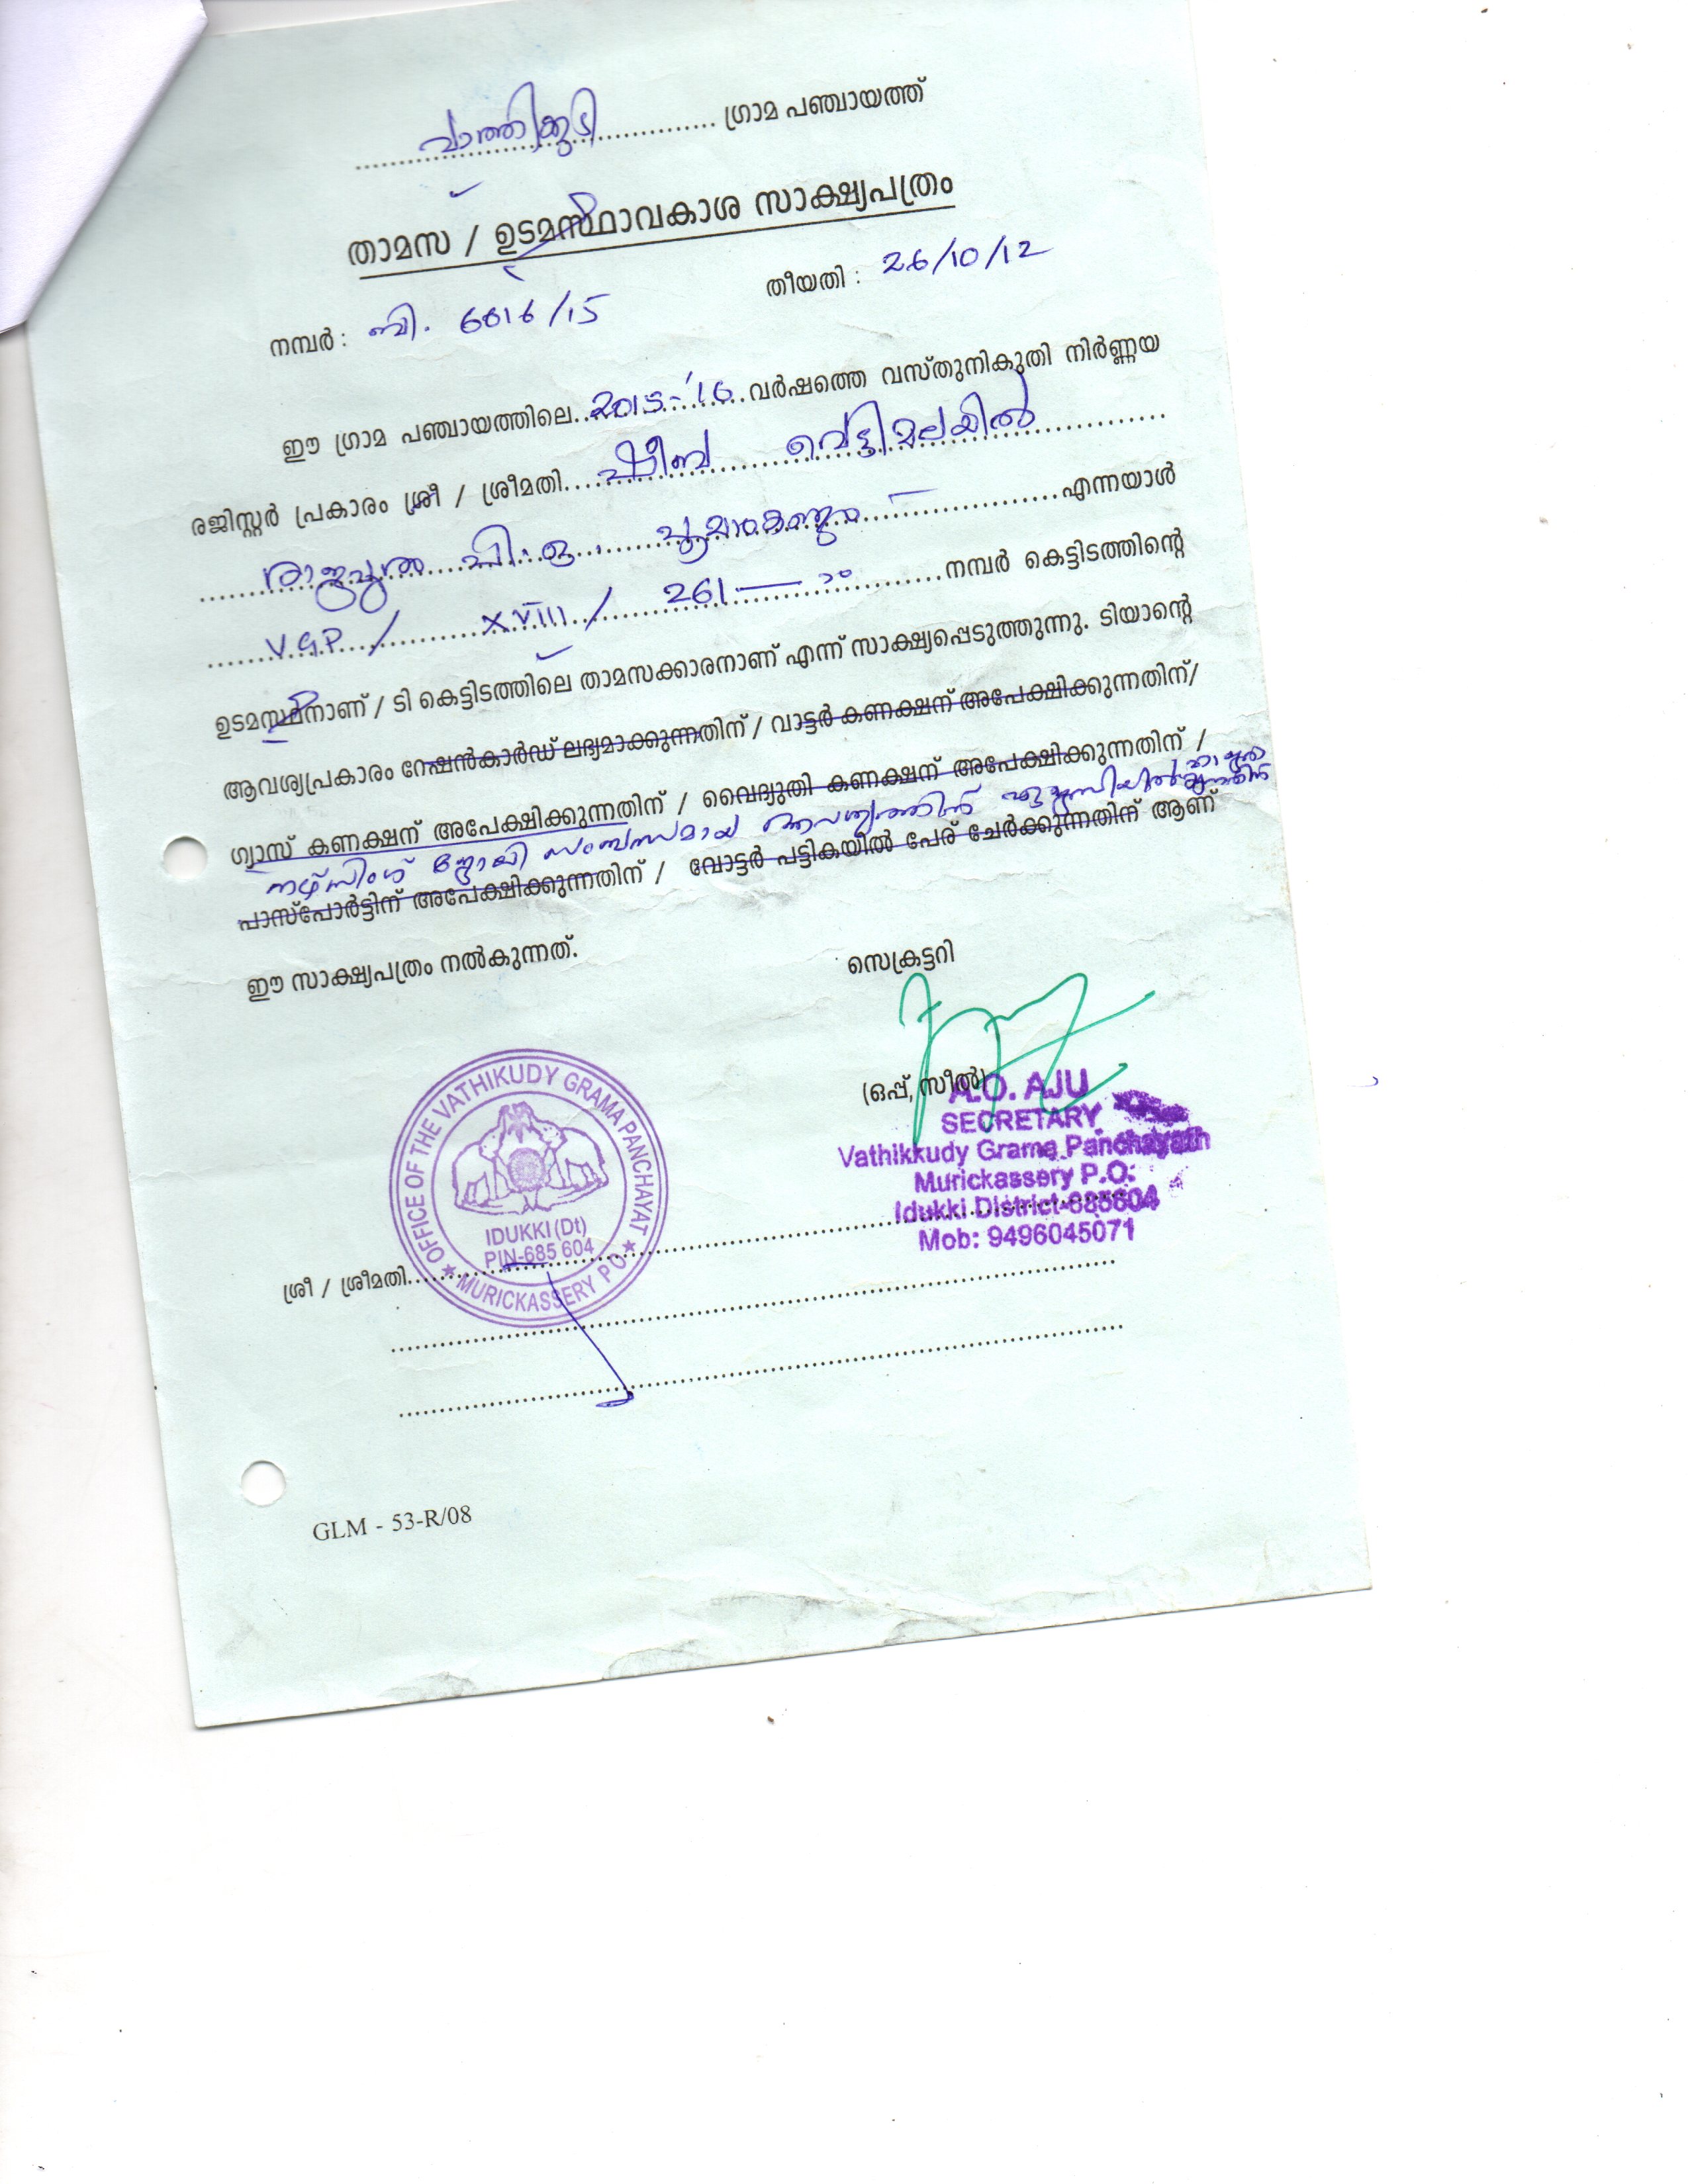 വാത്തിക്കുടി ഗ്രാമ പഞ്ചായത്ത്
താമസ / ഉടമസ്ഥാവകാശ സാക്ഷ്യപത്രം
നമ്പർ : ബി. 6816/15 തീയതി : 26/10/12
ഈ ഗ്രാമ പഞ്ചായത്തിലെ 2015-'16 വർഷത്തെ വസ്തുനികുതി നിർണ്ണയ
രജിസ്റ്റർ പ്രകാരം ശ്രീ / ശ്രീമതി ഷീബ വെട്ടിമലയിൽ
രാജപുരം പി.ഒ. എന്നയാൾ
V.G.P. / XVIII / 261 — ാം നമ്പർ കെട്ടിടത്തിന്റെ
ഉടമസ്ഥനാണ് / ടി കെട്ടിടത്തിലെ താമസക്കാരനാണ് എന്ന് സാക്ഷ്യപ്പെടുത്തുന്നു. ടിയാന്റെ
ആവശ്യപ്രകാരം റേഷൻകാർഡ് ലഭ്യമാക്കുന്നതിന് / വാട്ടർ കണക്ഷന് അപേക്ഷിക്കുന്നതിന്/
ഗ്യാസ് കണക്ഷന് അപേക്ഷിക്കുന്നതിന് / വൈദ്യുതി കണക്ഷന് അപേക്ഷിക്കുന്നതിന് /
നഴ്സിംഗ് ജോലി സംബന്ധമായ ആവശ്യത്തിന് എംബസിയിൽ ഹാജരാക്കുന്നതിന്
പാസ്പോർട്ടിന് അപേക്ഷിക്കുന്നതിന് / വോട്ടർ പട്ടികയിൽ പേര് ചേർക്കുന്നതിന് ആണ്
ഈ സാക്ഷ്യപത്രം നൽകുന്നത്.
സെക്രട്ടറി
(ഒപ്പ്, സീൽ)
A.O. AJU
SECRETARY
Vathikkudy Grama Panchayath
Murickassery P.O:
Idukki District-685604
Mob: 9496045071
OFFICE OF THE VATHIKUDY GRAMA PANCHAYAT
IDUKKI (Dt)
PIN-685 604
MURICKASSERY P O
ശ്രീ / ശ്രീമതി
GLM - 53-R/08